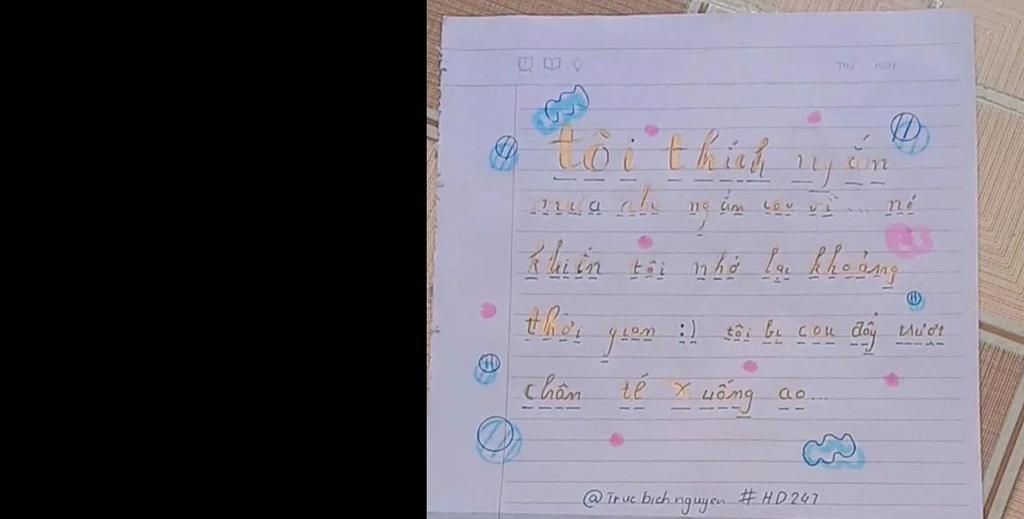 Thứ ngày
tôi thích ngắn
mưa như ngắm cou vì... nó
khiến tôi nhớ lại khoảng
thời gian :) tôi bị cou đẩy trượt
chân té xuống ao...
@Trucbichnguyen #HD247